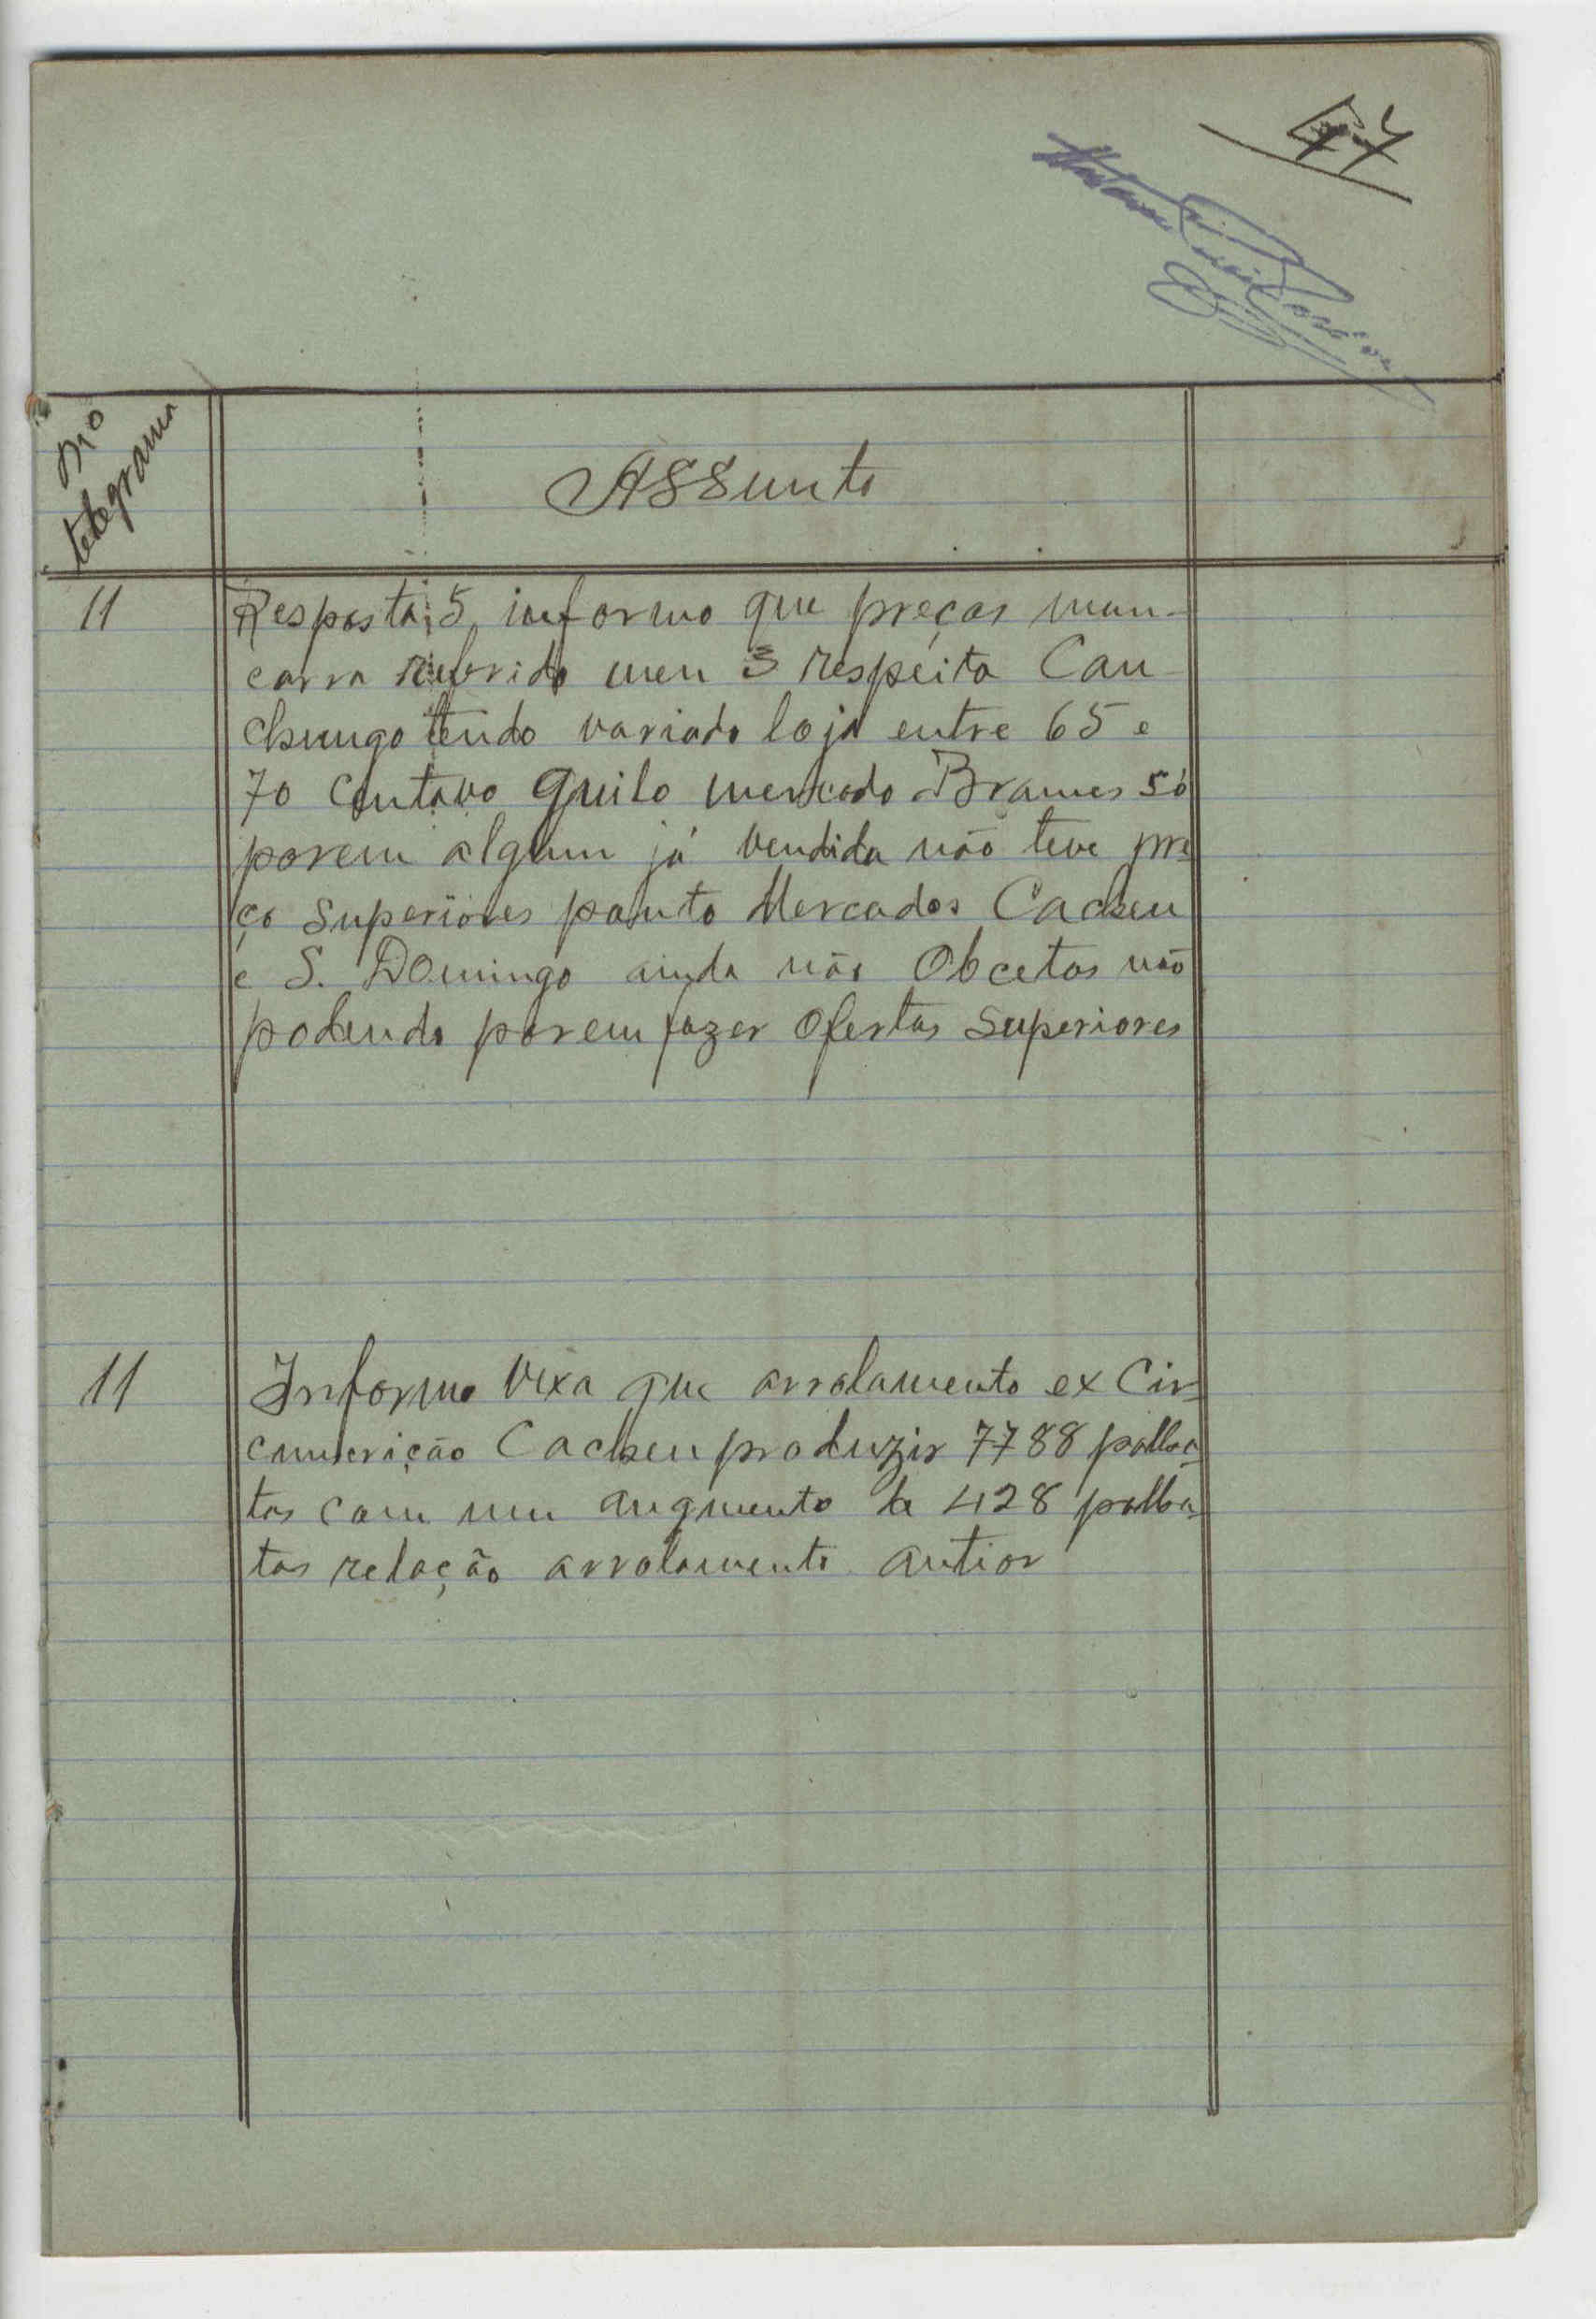 47
Nº
telegrama
Assunto
11
Resposta 5, informo que preços man-
carra referido meu 3 respeita Can-
chungo tendo variado loja entre 65 e
70 Centavo quilo mercado Brames só
porem algum já vendida não teve pre
ço Superiores ponto Mercados Cacheu
e S. Domingo ainda não Obcetos não
podendo porem fazer Ofertas Superiores
11
Informo Vexa que arrolamento ex Cir-
cunscrição Cacheu produzir 7788 palho-
tas com um augmento de 428 palho-
tas relação arrolamento antior